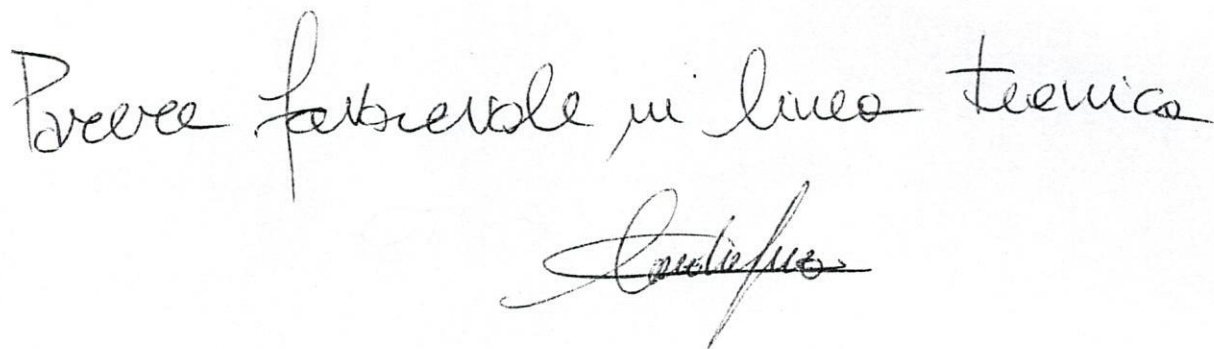 Parere favorevole in linea tecnica